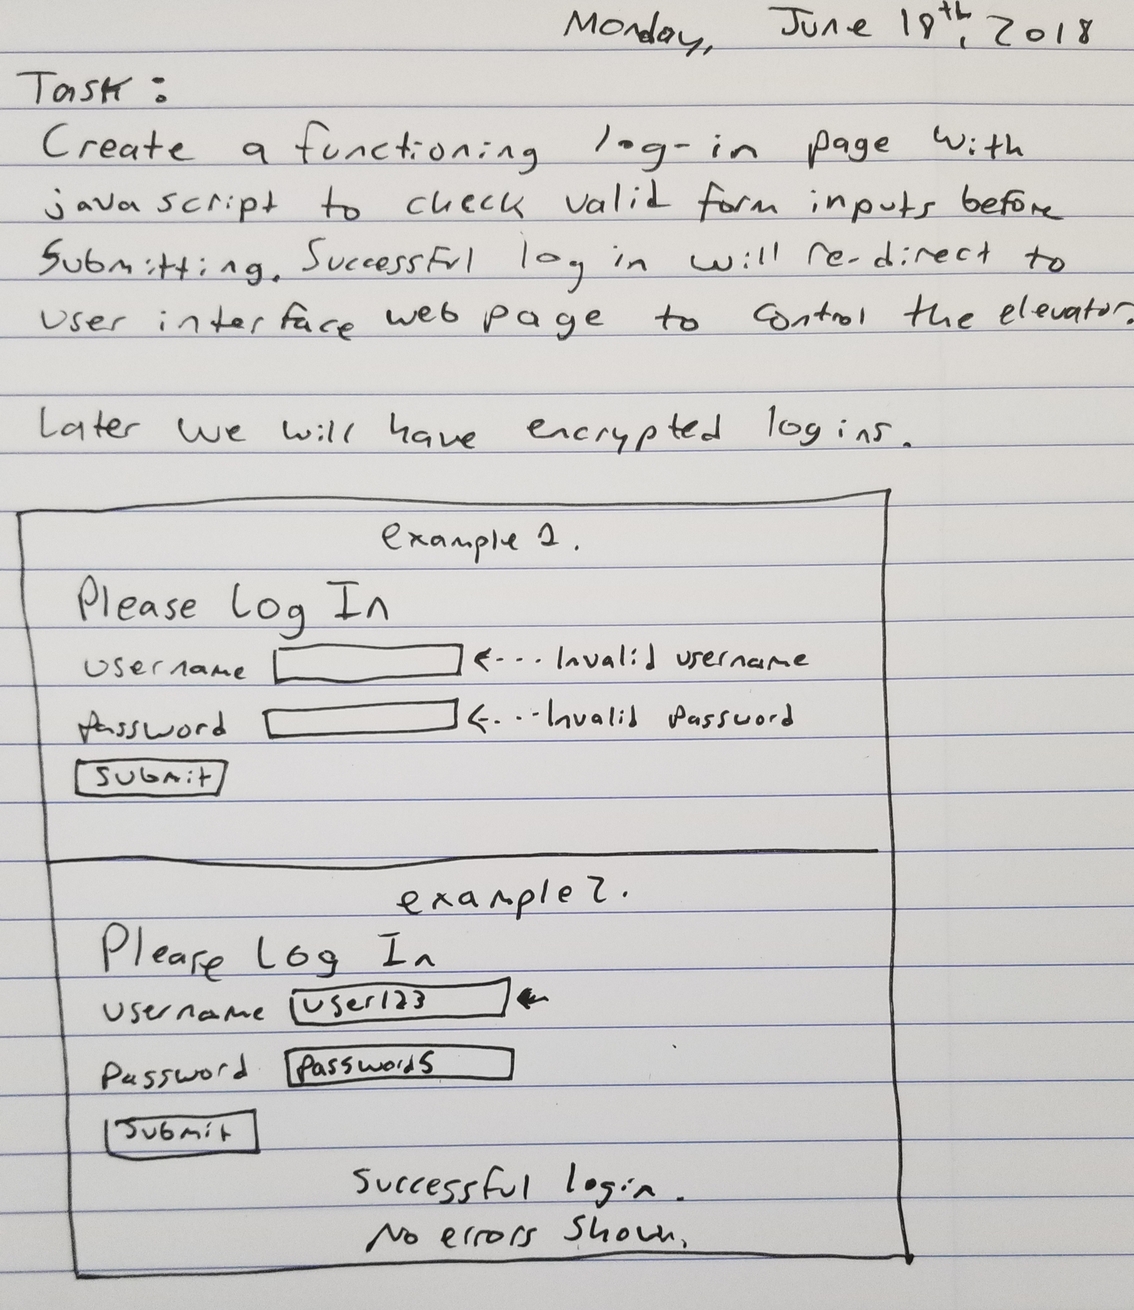 Monday, June 18th, 2018
Task:
Create a functioning log-in page with
javascript to check valid form inputs before
submitting. Successful log in will re-direct to
user interface web page to control the elevator.
Later we will have encrypted logins.
example 1.
Please Log In
username <--- Invalid username
Password <--- Invalid Password
Submit
example 2.
Please Log In
username user123 <-
Password Password5
Submit
Successful login.
No errors shown.